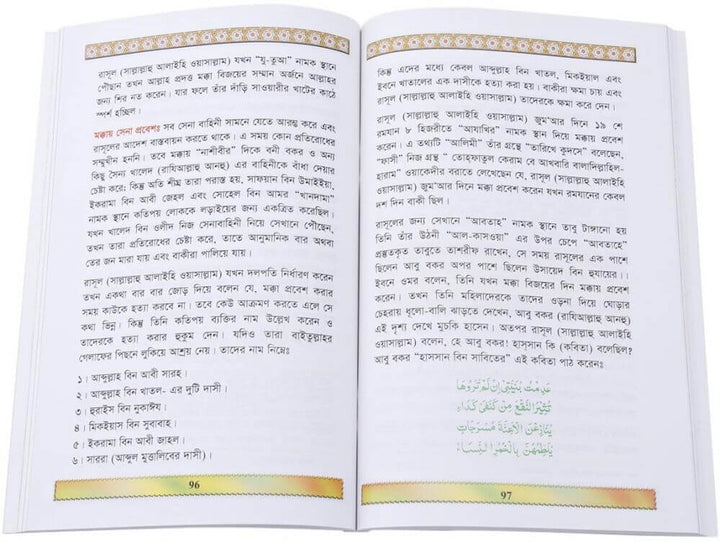 রাসূল (সাল্লাল্লাহু আলাইহি ওয়াসাল্লাম) যখন “যু-তুআ” নামক স্থানে
পৌছান তখন আল্লাহ প্রদত্ত মক্কা বিজয়ের সম্মান অর্জনে আল্লাহর
জন্য শির নত করেন। যার ফলে তাঁর দাঁড়ি সাওয়ারীর খাটের কাঠে
স্পর্শ হচ্ছিল।
মক্কায় সেনা প্রবেশঃ সব সেনা বাহিনী সামনে যেতে আরম্ভ করে এবং
রাসূলের আদেশ বাস্তবায়ন করতে থাকে। এ সময় কোন প্রতিরোধের
সম্মুখীন হননি। তবে মক্কায় “নাশীবীর” দিকে বনী বকর ও অন্য
কিছু সৈন্য খালেদ (রাযিআল্লাহু আনহু) এর বাহিনীকে বাঁধা দেয়ার
চেষ্টা করে; কিন্তু অতি শীঘ্র তারা পরাস্ত হয়, সাফয়ান বিন উমাইইয়া,
ইকরামা বিন আবী জেহল এবং সোহেল বিন আমর “খানদামা”
নামক স্থানে কতিপয় লোককে লড়াইয়ের জন্য একত্রিত করেছিল।
যখন খালেদ বিন ওলীদ নিজ সেনাবাহিনী নিয়ে সেখানে পৌঁছেন,
তখন তারা প্রতিরোধের চেষ্টা করে, তাতে আনুমানিক বার অথবা
তের জন মারা যায় এবং বাকীরা পালিয়ে যায়।
রাসূল (সাল্লাল্লাহু আলাইহি ওয়াসাল্লাম) যখন দলপতি নির্ধারণ করেন
তখন একথা বার বার জোড় দিয়ে বলেন যে, মক্কা প্রবেশ করার
সময় কাউকে হত্যা করবে না। তবে কেউ আক্রমণ করতে এলে সে
কথা ভিন্ন। কিন্তু তিনি কতিপয় ব্যক্তির নাম উল্লেখ করেন ও
তাদেরকে হত্যা করার হুকুম দেন। যদিও তারা বাইতুল্লাহর
গেলাফের পিছনে লুকিয়ে আশ্রয় নেয়। তাদের নাম নিম্নেঃ
১। আব্দুল্লাহ বিন আবী সারহ।
২। আব্দুল্লাহ বিন খাতল- এর দুটি দাসী।
৩। হুরাইস বিন নুকাঈয।
৪। মিকইয়াস বিন সুবাবাহ।
৫। ইকরামা বিন আবী জাহল।
৬। সাররা (আব্দুল মুত্তালিবের দাসী)।
96
কিন্তু এদের মধ্যে কেবল আব্দুল্লাহ বিন খাতল, মিকইয়াল এবং
ইবনে খাতালের এক দাসীকে হত্যা করা হয়। বাকীরা ক্ষমা চায় এবং
রাসূল (সাল্লাল্লাহু আলাইহি ওয়াসাল্লাম) তাদেরকে ক্ষমা করে দেন।
রাসূল (সাল্লাল্লাহু আলাইহি ওয়াসাল্লাম) জুম'আর দিনে ১৯ শে
রমযান ৮ হিজরীতে “আযাখির” নামক স্থান দিয়ে মক্কায় প্রবেশ
করেন। এ তথ্যটি “আলিমী” তাঁর গ্রন্থে “তারিখে কুদসে” বলেছেন,
“ফাসী” নিজ গ্রন্থ “ তোহফাতুল কেরাম বে আখবারি বালাদিল্লাহিল-
হারাম” ওয়াকেদীর বরাতে লেখেছেন যে, রাসূল (সাল্লাল্লাহু আলাইহি
ওয়াসাল্লাম) জুম'আর দিনে মক্কা প্রবেশ করেন যখন রমযানের কেবল
দশ দিন বাকী ছিল।
রাসূলের জন্য সেখানে “আবতাহ” নামক স্থানে তাবু টাঙ্গানো হয়
তিনি তাঁর উটনী “আল-কাসওয়া” এর উপর চেপে “আবতাহে”
প্রস্তুতকৃত তাবুতে তাশরীফ রাখেন, সে সময় রাসূলের এক পাশে
ছিলেন আবু বকর অপর পাশে ছিলেন উসায়েদ বিন হুযায়ের।।
ইবনে ওমর বলেন, তিনি যখন মক্কা বিজয়ের দিন মক্কায় প্রবেশ
করেন। তখন তিনি মহিলাদেরকে তাদের ওড়না দিয়ে ঘোড়ার
চেহরায় ধূলো-বালি ঝাড়তে দেখেন, আবু বকর (রাযিআল্লাহু আনহু)
এই দৃশ্য দেখে মুচকি হাসেন। অতপর রাসূল (সাল্লাল্লাহু আলাইহি
ওয়াসাল্লাম) বলেন, হে আবু বকর! হাস্সান কি (কবিতা) বলেছিল?
আবু বকর “হাসসান বিন সাবিতের” এই কবিতা পাঠ করেনঃ
عدمت بنيتي إن لم تروها
تثير النقع من كنفي كداء
ينازعن الأعنة مسرجات
يلطمهن بالخمر النساء
97